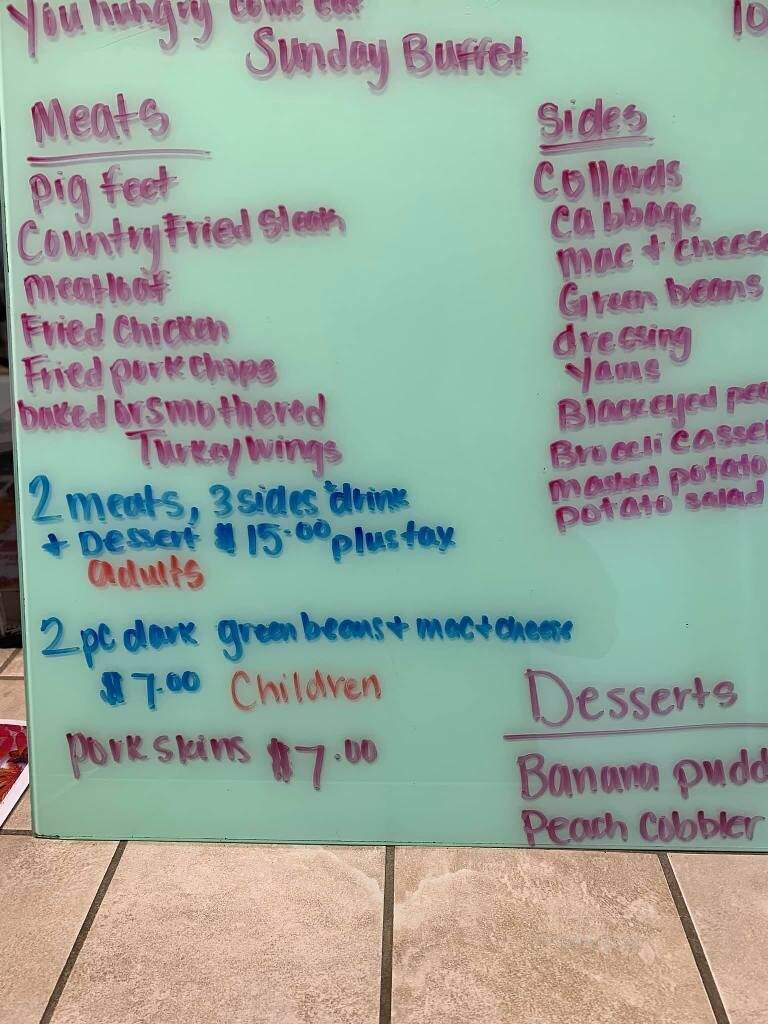 You hungry come eat
10
Sunday Buffet
Meats
pig feet
Country Fried steak
meatloaf
Fried Chicken
Fried pork chops
baked or smothered
Turkey Wings
2 meats, 3 sides + drink
+ Dessert $15.00 plus tax
adults
2 pc dark green beans + mac + cheese
$7.00 Children
pork skins $7.00
Sides
Collards
Cabbage
mac + cheese
Green beans
dressing
Yams
Blackeyed pea
Brocoli Casse
mashed potato
potato salad
Desserts
Banana pudd
Peach Cobbler